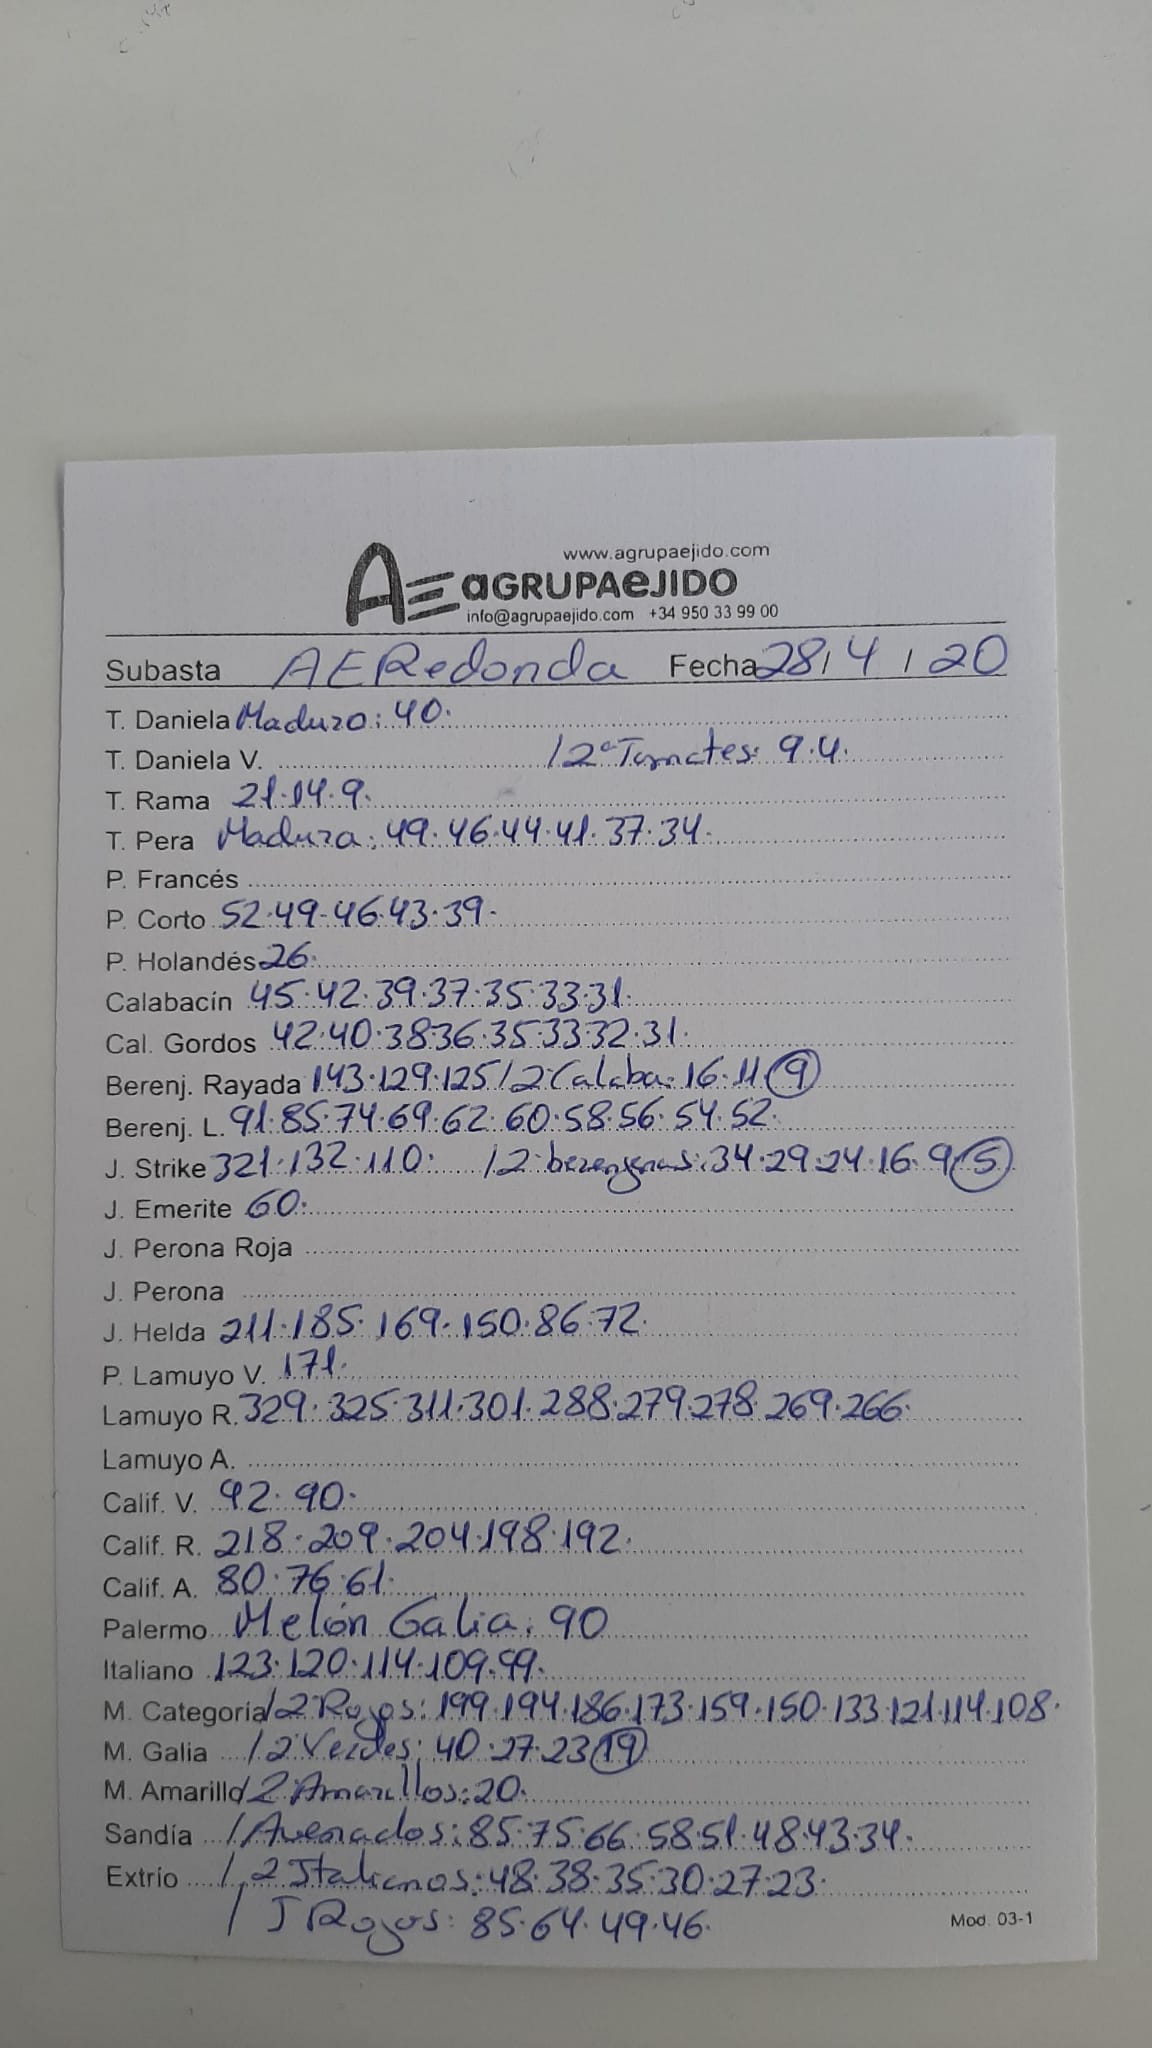 www.agrupaejido.com
AE aGRUPAeJIDO
info@agrupaejido.com +34 950 33 99 00
Subasta AERedonda Fecha 28/4/20
T. Daniela Maduro: 40.
T. Daniela V. /2ª Tomates: 9.4.
T. Rama 21.14.9.
T. Pera Madura: 49.46.44.41.37.34.
P. Francés
P. Corto 52.49.46.43.39.
P. Holandés 26.
Calabacín 45.42.39.37.35.33.31.
Cal. Gordos 42.40.38.36.35.33.32.31.
Berenj. Rayada 143.129.125/2ª Calaba: 16.11.9
Berenj. L. 91.85.74.69.62.60.58.56.54.52.
J. Strike 321.132.110. /2ª berenjenas: 34.29.24.16.9.5
J. Emerite 60.
J. Perona Roja
J. Perona
J. Helda 211.185.169.150.86.72.
P. Lamuyo V. 171.
Lamuyo R. 329.325.311.301.288.279.278.269.266.
Lamuyo A.
Calif. V. 92.90.
Calif. R. 218.209.204.198.192.
Calif. A. 80.76.61.
Palermo Melón Galia: 90
Italiano 123.120.114.109.99.
M. Categoría /2ª Rojos: 199.194.186.173.159.150.133.121.114.108.
M. Galia /2ª Verdes: 40.27.23.19
M. Amarillo /2ª Amarillos: 20.
Sandía /Avenados: 85.75.66.58.51.48.43.34.
Extrío /2ª Italianos: 48.38.35.30.27.23.
/ J Rojos: 85.64.49.46.
Mod. 03-1